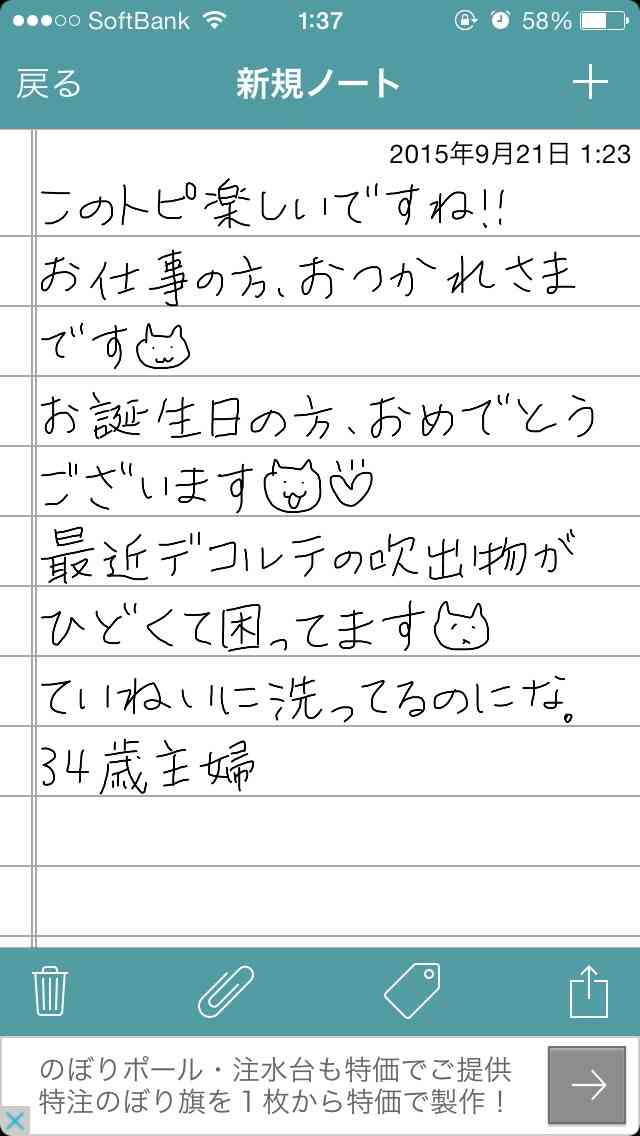 SoftBank 1:37 58%
戻る 新規ノート
2015年9月21日 1:23
このトピ楽しいですね!!
お仕事の方、おつかれさま
です
お誕生日の方、おめでとう
ございます
最近デコルテの吹出物が
ひどくて困ってます
ていねいに洗ってるのにな。
34歳主婦
のぼりポール・注水台も特価でご提供
特注のぼり旗を1枚から特価で製作！